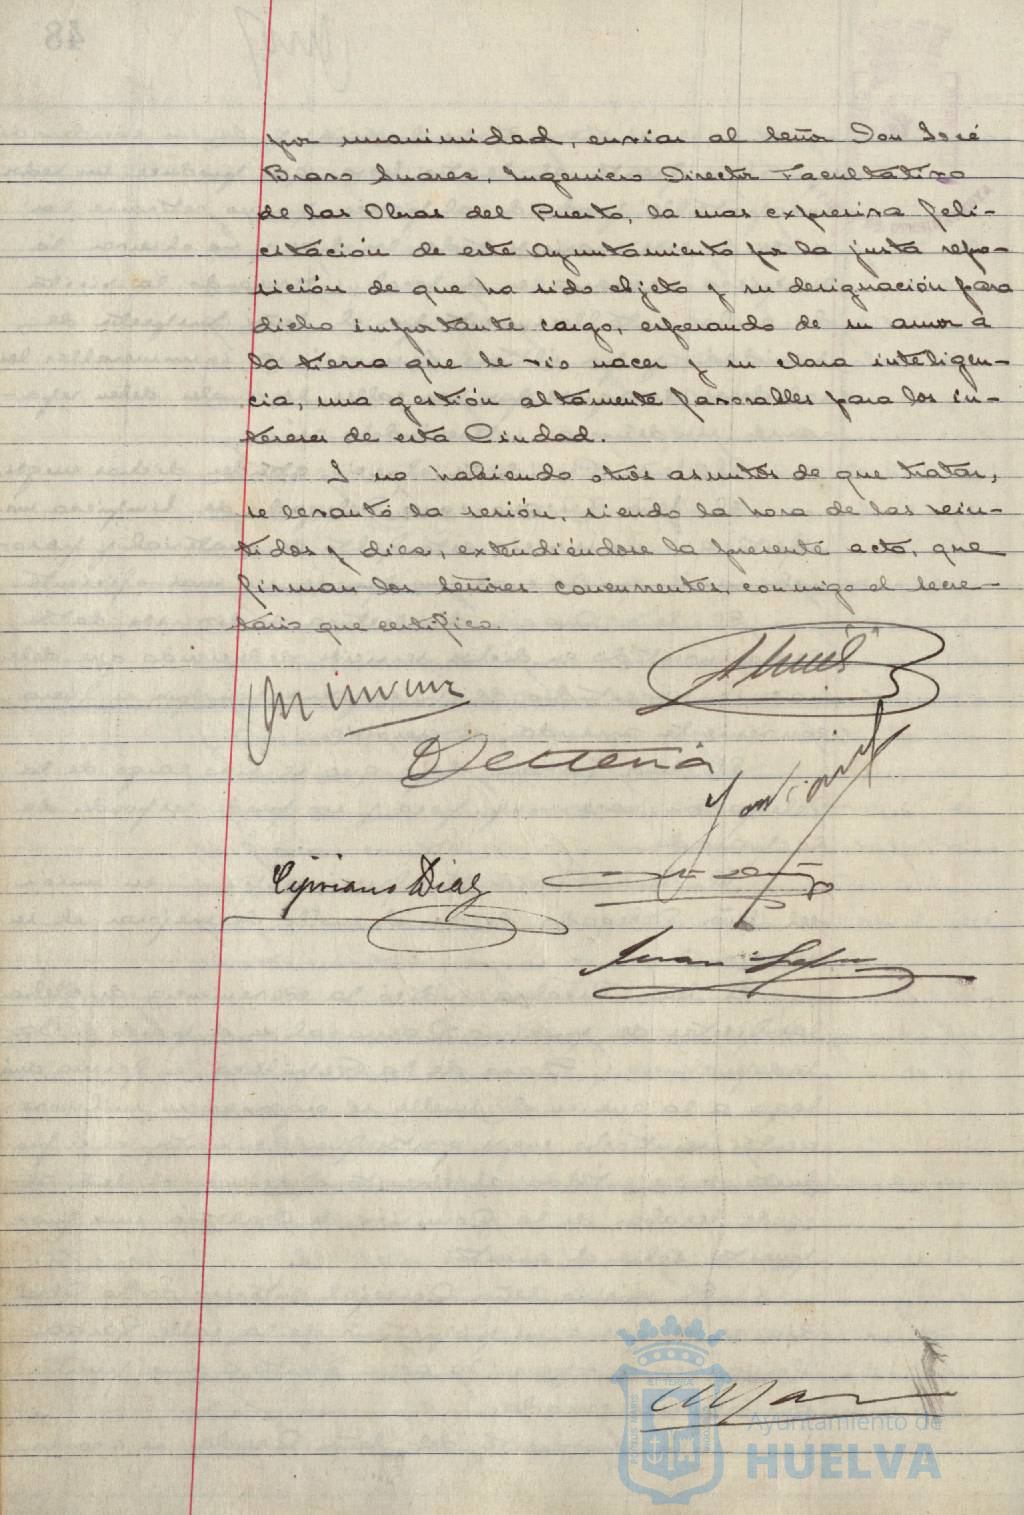 por unanimidad, enviar al Señor Don José
Bravo Suarez, Ingeniero Director Facultativo
de las Obras del Puerto, la mas expresiva feli-
citación de este Ayuntamiento por la justa repo-
sición de que ha sido objeto y su designación para
dicho importante cargo, esperando de su amor a
la tierra que le vio nacer y su clara inteligen-
cia, una gestión altamente favorables para los in-
tereses de esta Ciudad.
Y no habiendo otros asuntos de que tratar,
se levantó la sesión, siendo la hora de las vein-
tidos y diez, extendiéndose la presente acta, que
firman los señores concurrentes, conmigo el secre-
tario que certifico.
Cipriano Diaz
Juan
Ayuntamiento de
HUELVA
48